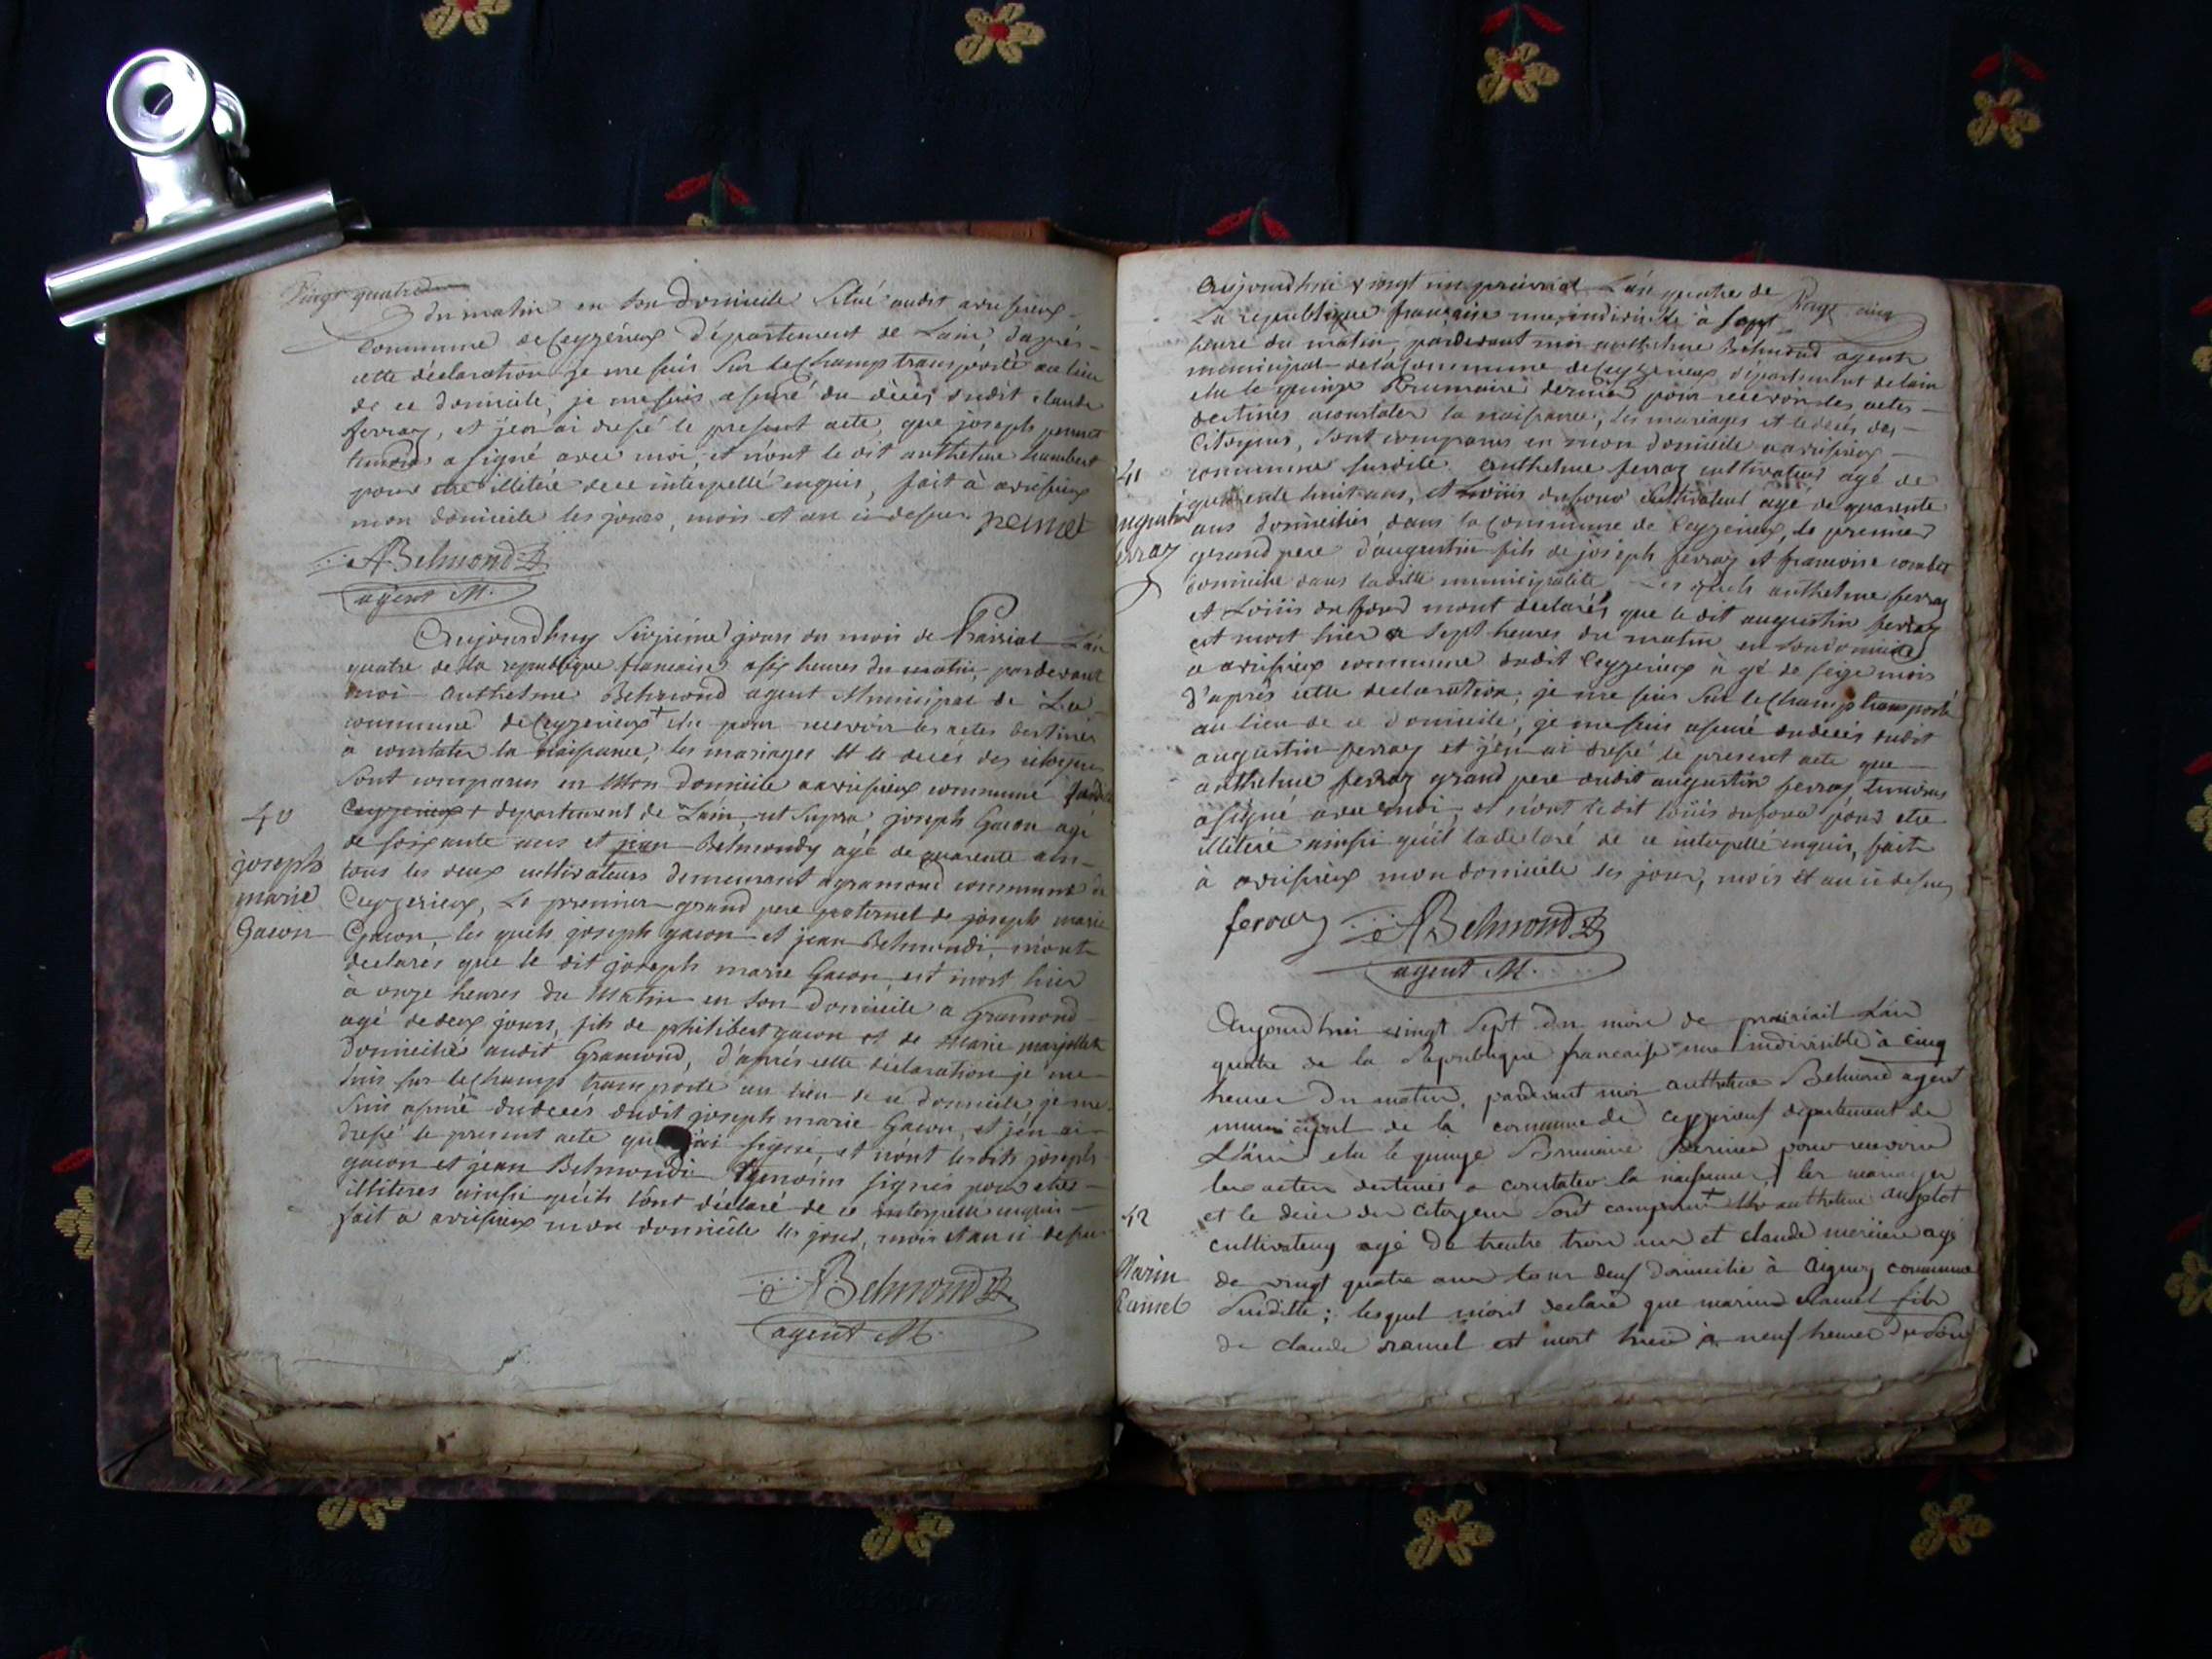 Vingt quatre
du matin en son domicile situé audit avrissieux
commune de Ceyzérieux département de Lain, daprès
cette déclaration je me suis sur le champ transporté au lieu
de ce domicile, je me suis assuré du décès dudit claude
ferraz, et j'en ai dressé le present acte, que joseph pernet
temoins a signé avec moi, et n'ont le dit anthelme humbert
pour etre illitéré de ce interpellé enquis, fait à avrissieux
mon domicile les jours, mois et an ci dessus pernet
ABelmond
agent M.
Aujourdhuy sixieme jours du mois de Prairial Lan
quatre de la republique francaise a six heures du matin, pardevant
moi anthelme Belmond agent Municipal de La
commune de Ceyzerieux + elu pour recevoir les actes destinés
à constater la naissance, les mariages et le decés des citoyens
sont comparus en mon domicile a avrissieux commune
Ceyzerieux + departement de Lain, ut supra joseph Gacon agé
40
de soixante ans et jean Belmondy agé de quarente ans
joseph
tous les deux cultivateurs demeurant a gramond commune de
marie
Ceyzerieux, Le premier grand pere paternel de joseph marie
Gacon
Gacon, les quels joseph gacon et jean Belmondi, m'ont
declarés que le dit joseph marie Gacon est mort hier
à onze heures du Matin en son domicile a Gramond
agé de deux jours, fils de philibert gacon et de Marie marjollet
domiciliés audit Gramond, d'après cette déclaration je me
suis sur le champ transporté au lieu de ce domicile je me
suis assuré du decés dudit joseph marie Gacon, et j'en ai
dressé le present acte que j'ai signé, et n'ont lesdits joseph
gacon et jean Belmondi temoins signes pour etres
illiteres ainsi qu'ils l'ont déclaré de ce interpellé enquis
fait à avrissieux mon domicile les jour, mois et an ci dessus
ABelmond
agent M.
Aujourdhui vingt un prairial Lan quatre de
Vingt cinq
La republique française une, indivisible à sept
heure du matin, pardevant moi anthelme Belmond agent
municipal de la Commune de Ceyzerieux département de lain
elu le quinze Brumaire dernier pour recevoir les actes
destinés a constater la naissance, les mariages et le decés des
Citoyens, sont comparus en mon domicile a avrissieux
41
commune susdite anthelme ferraz cultivateur agé de
quarente huit ans, et Louis dufour Cultivateur agé de quarente
augustin
ans domiciliés dans la Commune de Ceyzerieux, le premier
ferraz
grand pere d'augustin fils de joseph ferraz et francoise combet
domicilié dans la ditte municipalité, Les quels anthelme ferraz
et Louis dufour m'ont declarés que le dit augustin ferraz
est mort hier a sept heures du matin en son domicile
a avrissieux commune dudit Ceyzerieux agé de seize mois
d'après cette declaration, je me suis sur le champ transporté
au lieu de ce domicile, je me suis assuré du decés dudit
augustin ferraz et j'en ai dressé le present acte que
anthelme ferraz grand pere dudit augustin ferraz temoins
a signé avec moi, et n'ont le dit Louis dufour pour etre
illitéré ainsi quil la declaré de ce interpellé enquis, fait
à avrissieux mon domicile les jour, mois et an ci dessus
ferraz ABelmond
agent M.
Aujourdhui vingt sept du mois de prairial Lan
quatre de la Republique francaise une indivisible à cinq
heures du matin, pardevant moi anthelme Belmond agent
municipal de la commune de ceyzerieux departement de
Lain elu le quinze Brumaire dernier pour recevoir
les actes destinés a constater la naissance, les mariages
42
et le deces des citoyens sont comparus + anthelme
cultivateur agé de trentre trois ans et claude mercier agé
Marin
de vingt quatre ans tous deux domicilié à Aignoz commune
Ramel
susditte; lesquel m'ont declaré que marin Ramel fils
de claude ramel est mort hier à neuf heures du soir